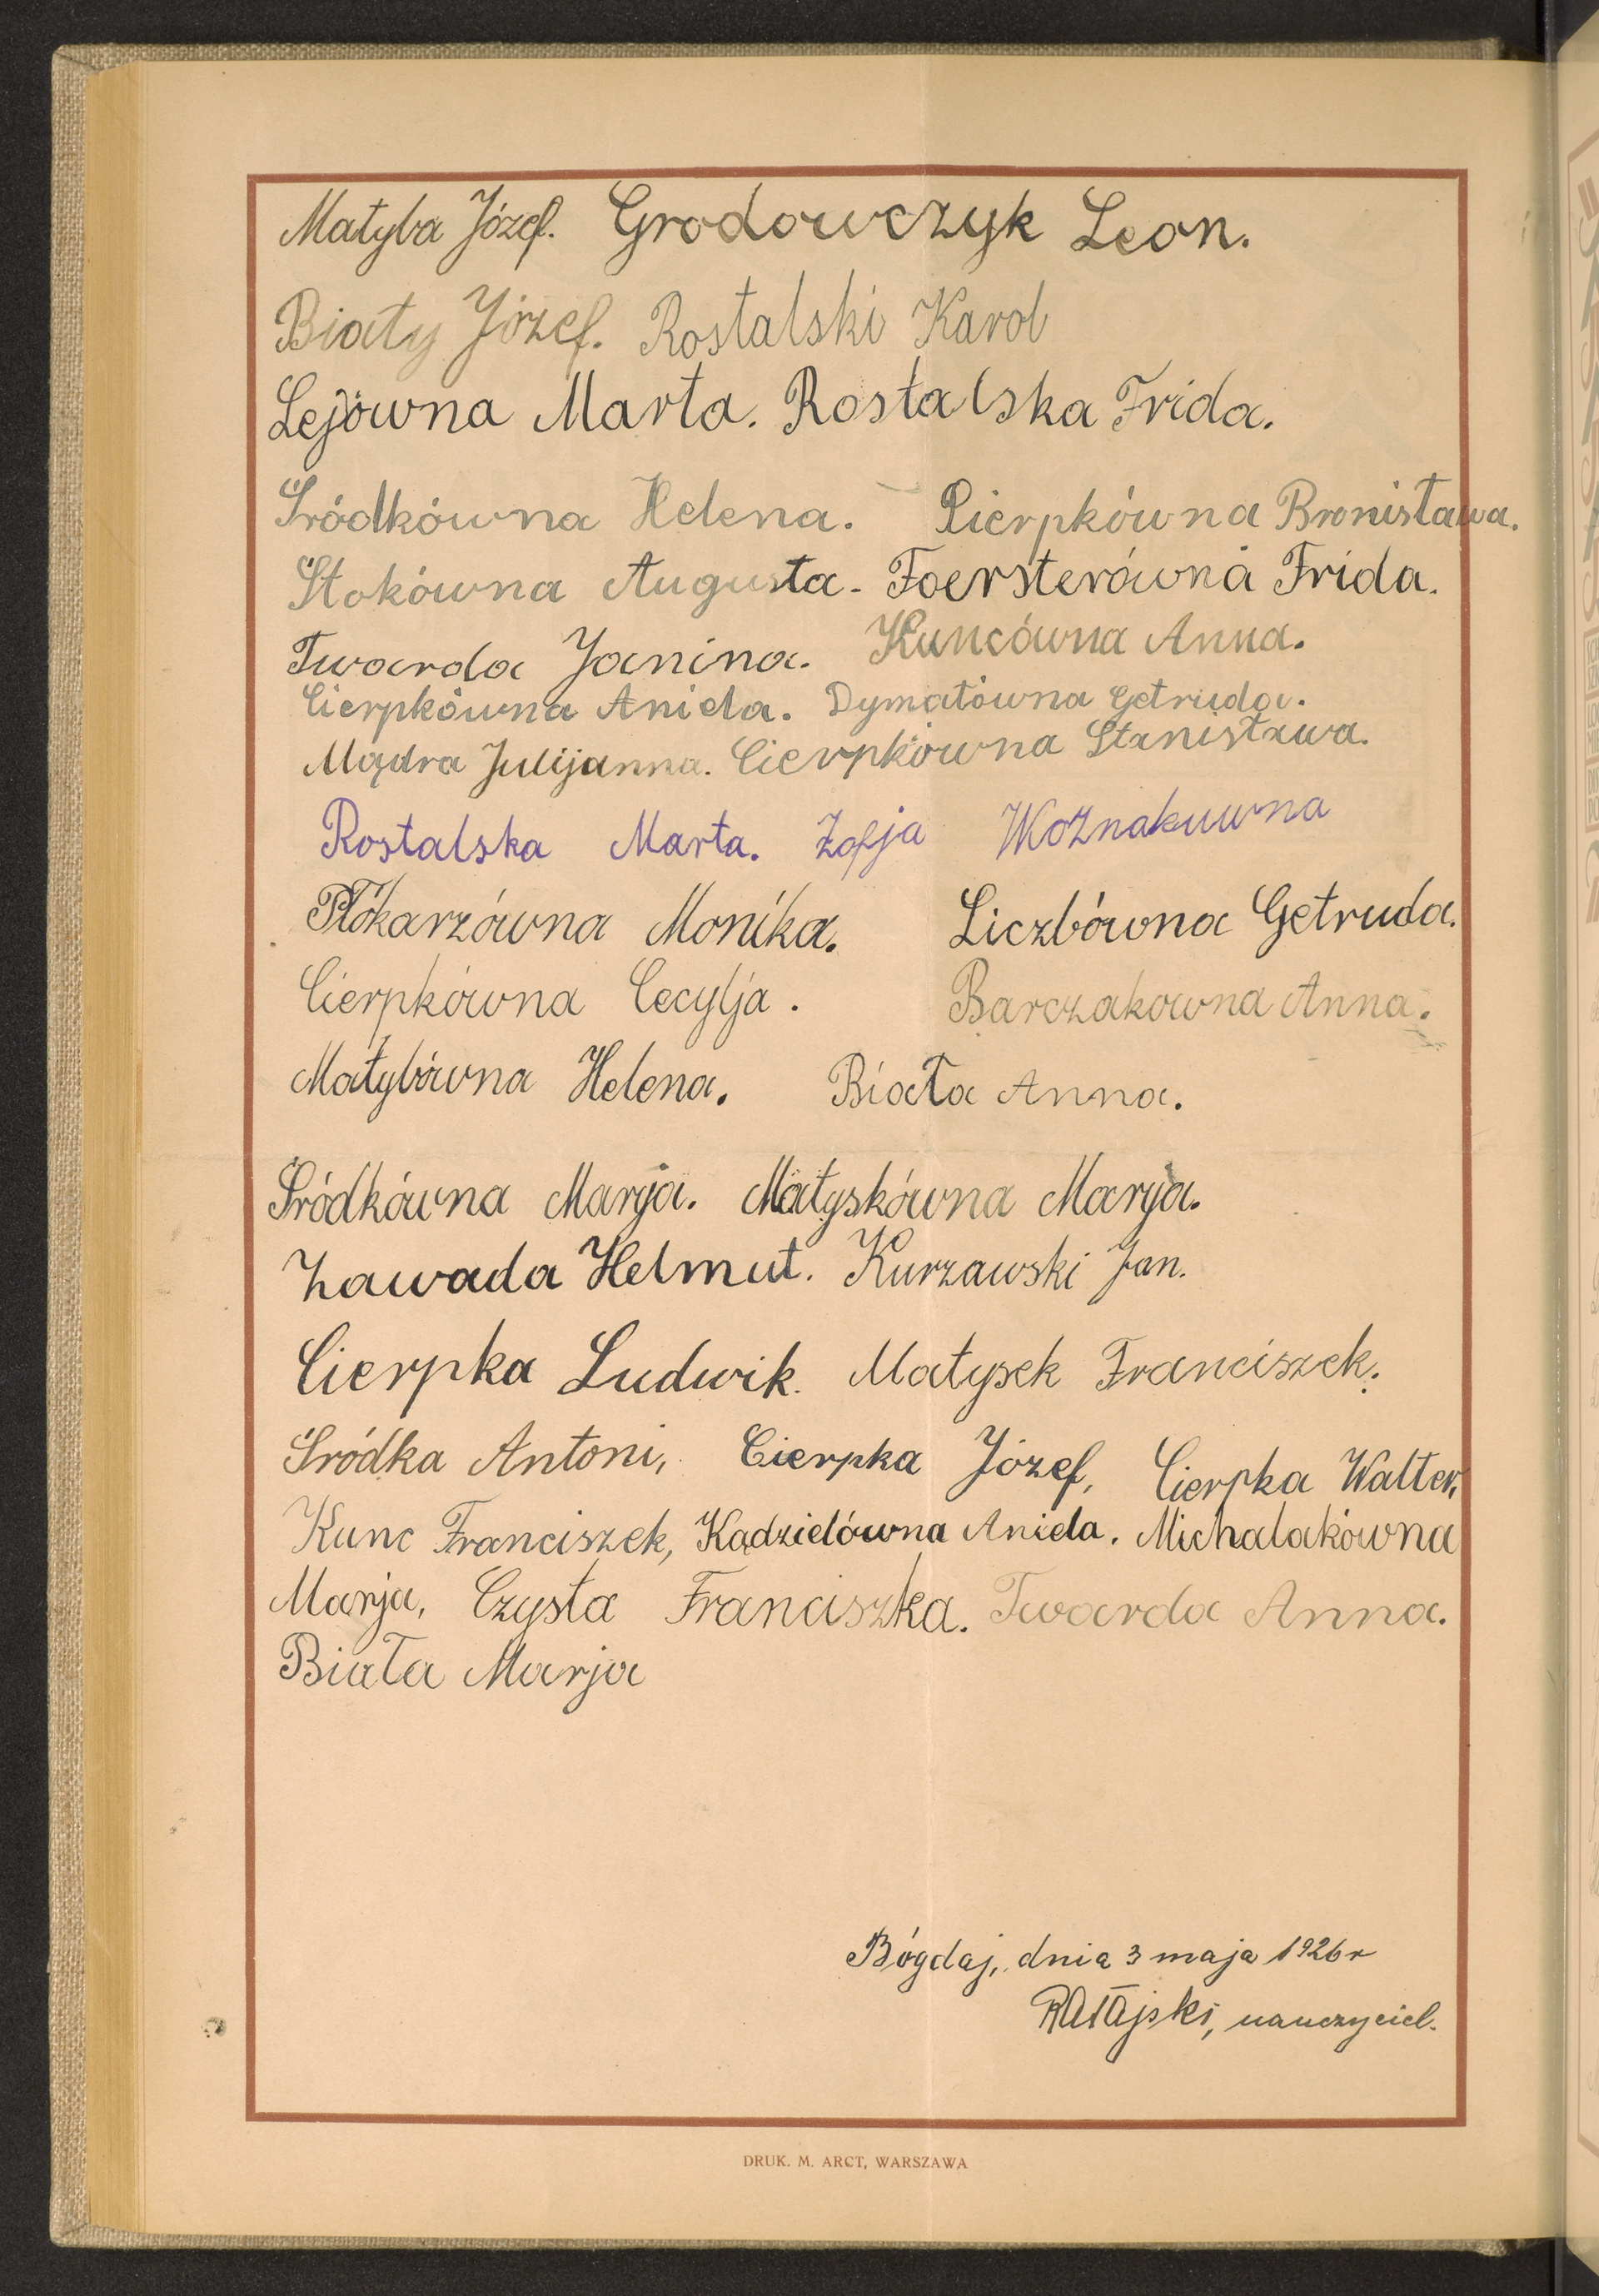 Matyba Józef. Grodowczyk Leon.
Biały Józef. Rostalski Karol
Lejówna Marta. Rostalska Frida.
Śródkówna Helena. Cierpkówna Bronisława.
Stokówna Augusta. Foersterówna Frida.
Twarda Janina. Kuncówna Anna.
Cierpkówna Aniela. Dymałówna Getruda.
Mądra Julijanna. Cierpkówna Stanisława.
Rostalska Marta. Zofja Woznakuwna
Płókarzówna Monika. Liczbówna Getruda.
Cierpkówna Cecylja. Barczakowna Anna.
Matybówna Helena. Biała Anna.
Śródkówna Marja. Matyskówna Marja.
Zawada Helmut. Kurzawski Jan.
Cierpka Ludwik. Matysek Franciszek.
Śródka Antoni, Cierpka Józef, Cierpka Walter,
Kunc Franciszek, Kądzielówna Aniela. Michalakówna
Marja, Czysta Franciszka. Twarda Anna.
Biała Marja
Bógdaj, dnia 3 maja 1926 r
Ratajski, nauczyciel.
DRUK. M. ARCT, WARSZAWA